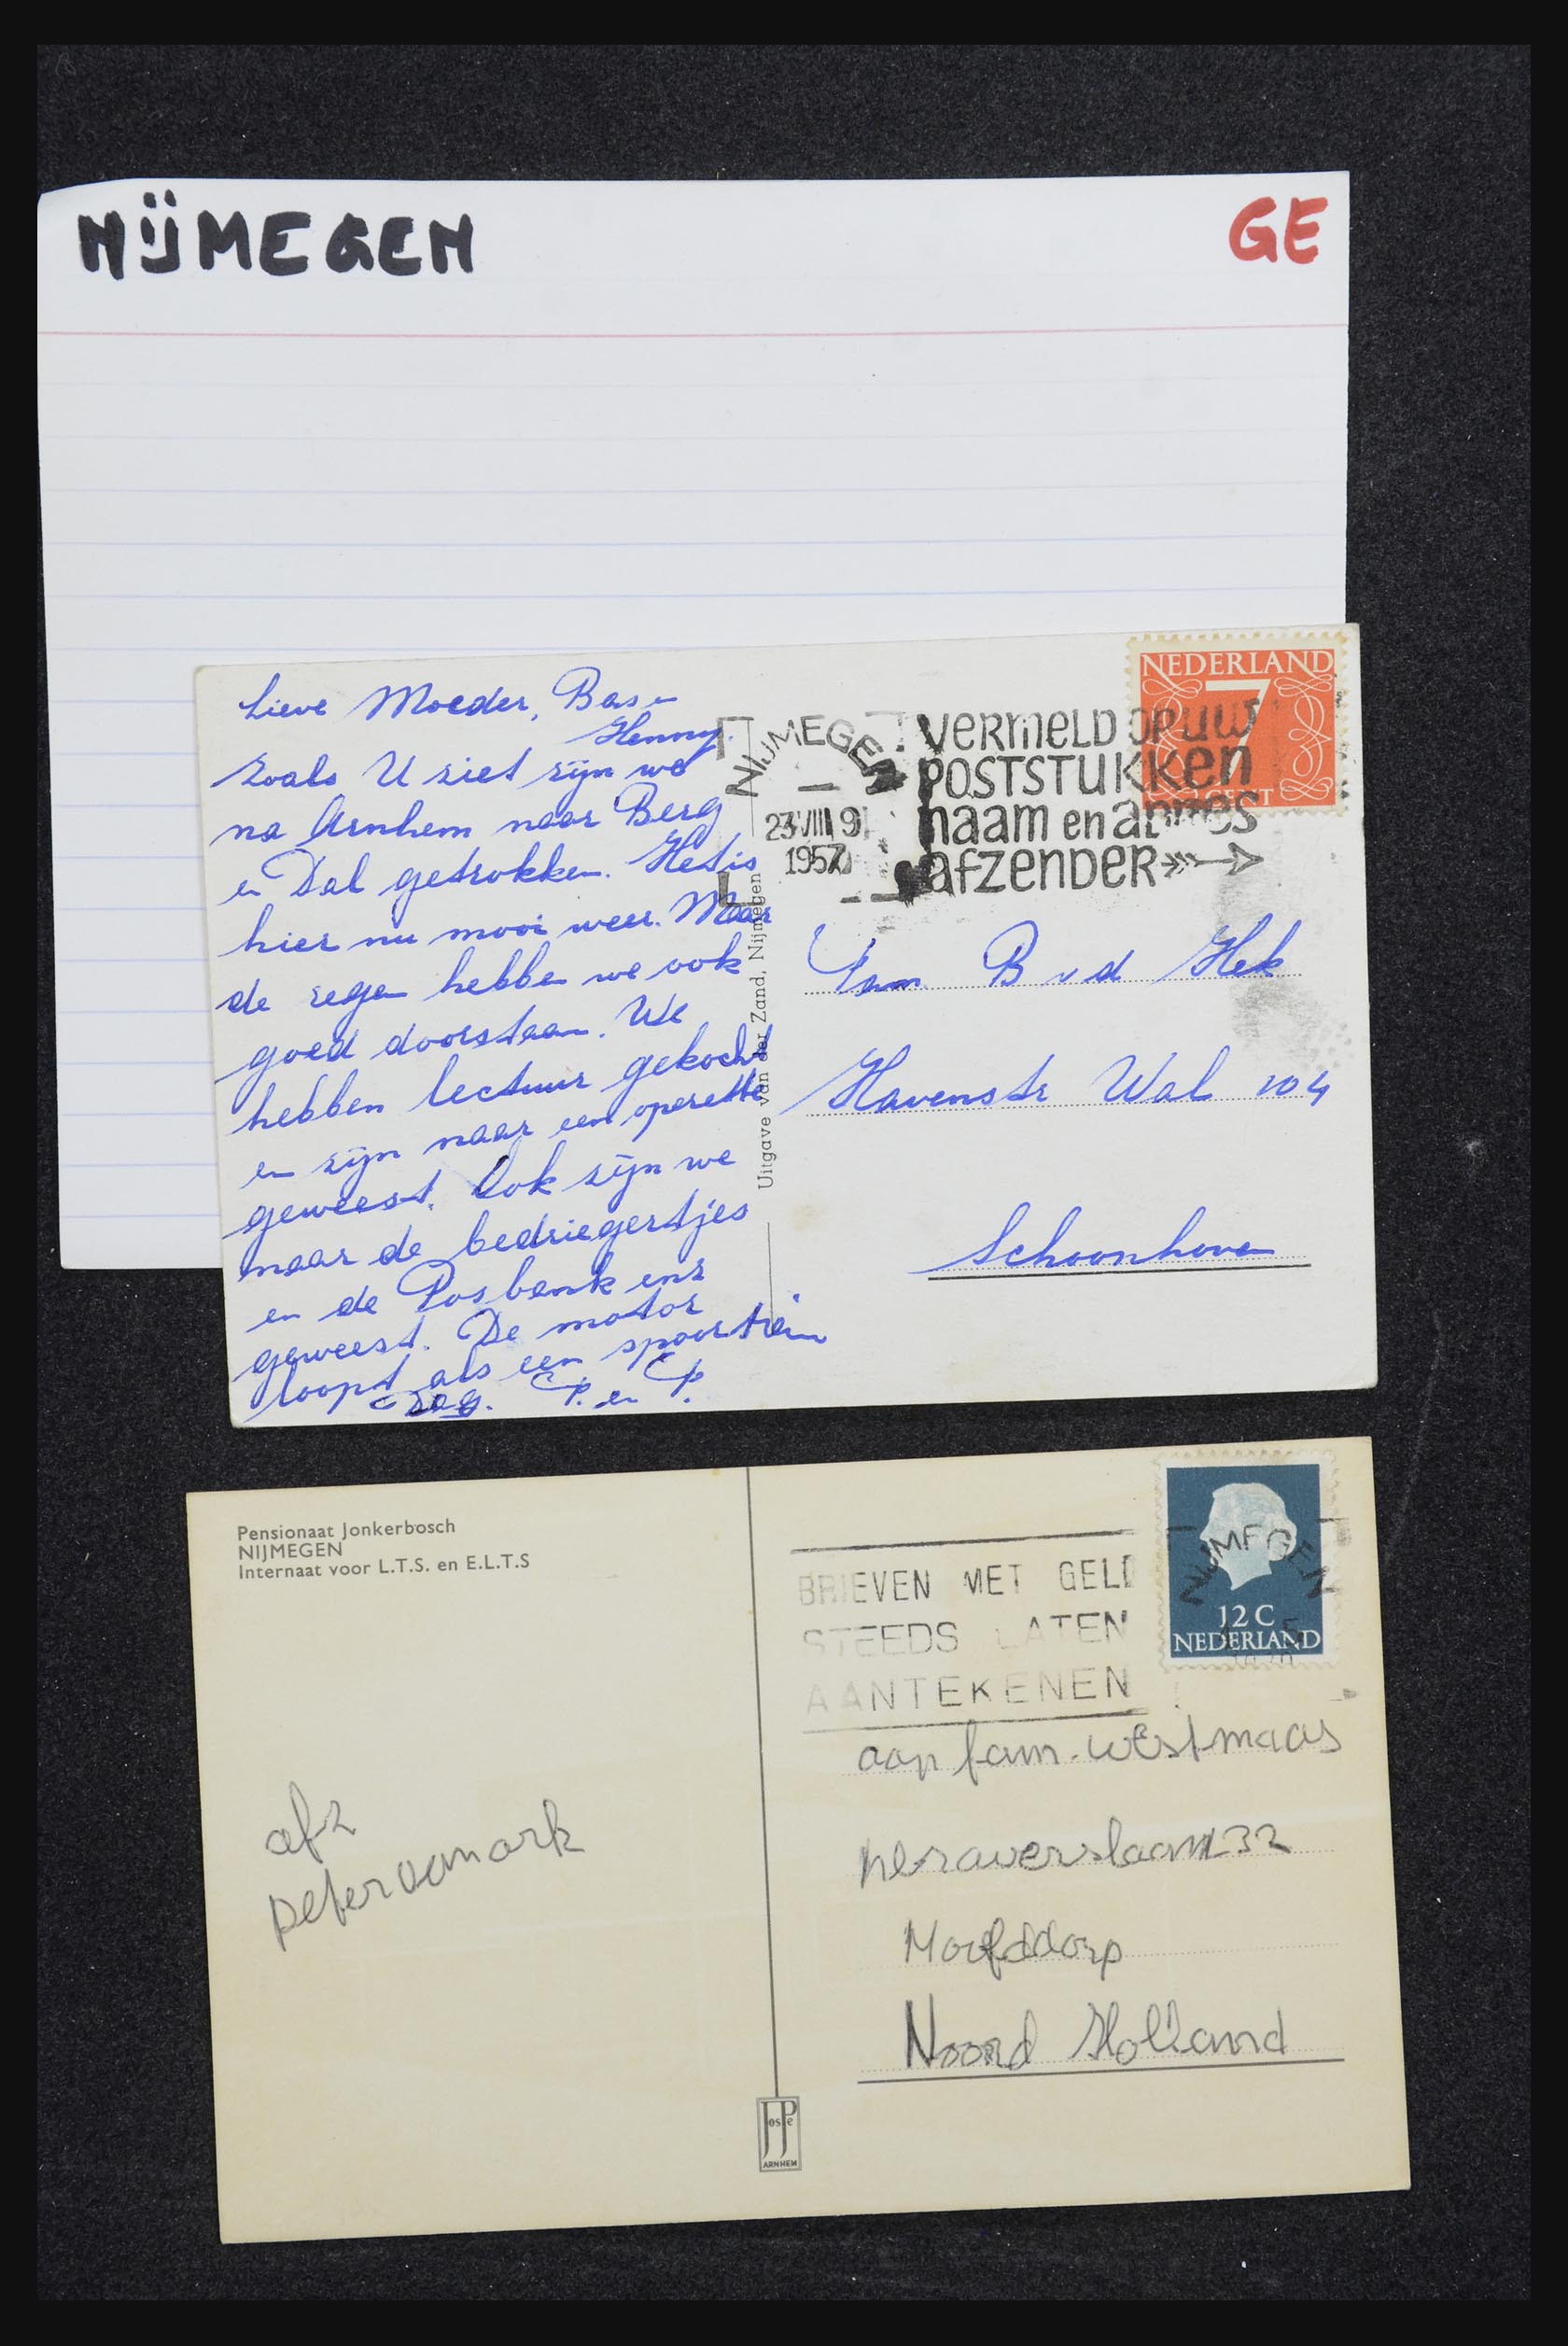 NIJMEGEN
GE
Lieve Moeder, Bas en
Henny.
Zoals U ziet zijn we
na Arnhem naar Berg
en Dal getrokken. Het is
hier nu mooi weer. Maar
de regen hebben we ook
goed doorstaan. We
hebben lectuur gekocht
en zijn naar een operette
geweest. Ook zijn we
naar de bedriegertjes
en de Posbank enz
geweest. De motor
loopt als een spoortrein
Dag. P. en P.
Uitgave van der Zand, Nijmegen
NIJMEGEN
23 VIII 9
1957
VERMELD OP UW
POSTSTUKKEN
naam en adres
afzender
NEDERLAND
7
CENT
Fam B v d Hek
Havenstr Wal 104
Schoonhoven
Pensionaat Jonkerbosch
NIJMEGEN
Internaat voor L.T.S. en E.L.T.S
BRIEVEN MET GELD
STEEDS LATEN
AANTEKENEN
NIJMEGEN
12 C
NEDERLAND
afz
peter van ark
aan fam. westmaas
132
Hoofddorp
Noord Holland
JosPe
ARNHEM